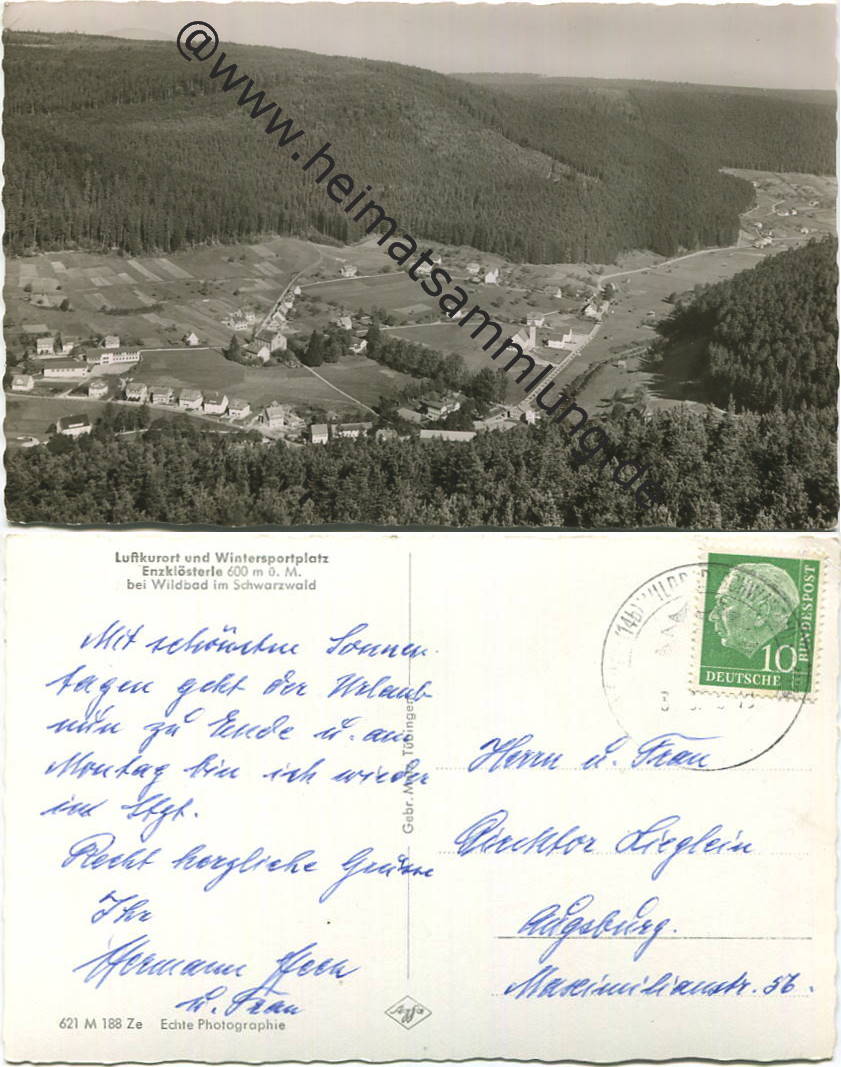 @www.heimatsammlung.de
Luftkurort und Wintersportplatz
Enzklösterle 600 m ü. M.
bei Wildbad im Schwarzwald
Mit schönsten Sonnen-
tagen geht der Urlaub
nun zu Ende u. am
Montag bin ich wieder
in Stgt.
Recht herzliche Grüsse
Ihr
Hermann
u. Frau
621 M 188 Ze Echte Photographie
Gebr. Metz Tübingen
Agfa
(14b) WILDBAD
10
DEUTSCHE
BUNDESPOST
Herrn u. Frau
Direktor Lieglein
Augsburg.
Maximilianstr. 56.